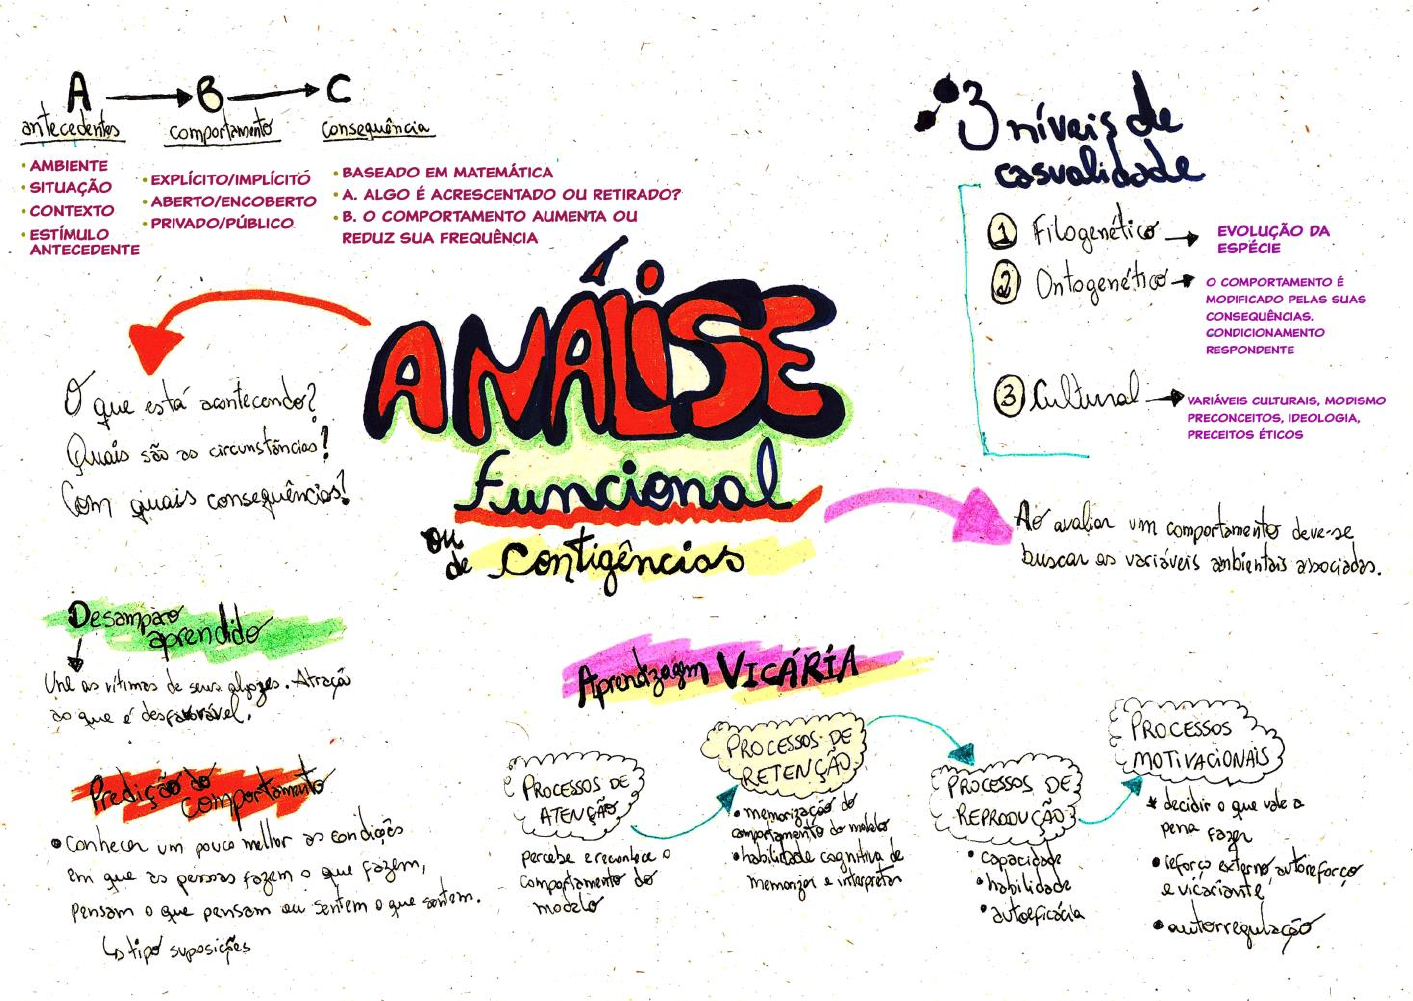 A → B → C
antecedentes
comportamento
consequência
• AMBIENTE
• SITUAÇÃO
• CONTEXTO
• ESTÍMULO
ANTECEDENTE
• EXPLÍCITO/IMPLÍCITO
• ABERTO/ENCOBERTO
• PRIVADO/PÚBLICO
• BASEADO EM MATEMÁTICA
• A. ALGO É ACRESCENTADO OU RETIRADO?
• B. O COMPORTAMENTO AUMENTA OU
REDUZ SUA FREQUÊNCIA
3 níveis de
casualidade
1 Filogenético →
EVOLUÇÃO DA
ESPÉCIE
2 Ontogenético →
O COMPORTAMENTO É
MODIFICADO PELAS SUAS
CONSEQUÊNCIAS.
CONDICIONAMENTO
RESPONDENTE
3 Cultural →
VARIÁVEIS CULTURAIS, MODISMO
PRECONCEITOS, IDEOLOGIA,
PRECEITOS ÉTICOS
ANÁLISE
Funcional
ou
de Contigências
O que está acontecendo?
Quais são as circunstâncias?
Com quais consequências?
Ao avaliar um comportamento deve-se
buscar as variáveis ambientais associadas.
Desamparo
aprendido
Une as vítimas de seus algozes. Atração
ao que é desfavorável.
Predição do
comportamento
• Conhecer um pouco melhor as condições
em que as pessoas fazem o que fazem,
pensam o que pensam ou sentem o que sentem.
↳ tipo suposições
Aprendizagem VICÁRIA
PROCESSOS DE
ATENÇÃO
percebe e reconhece o
comportamento do
modelo
PROCESSOS DE
RETENÇÃO
• memorização do
comportamento do modelo
• habilidade cognitiva de
memorizar e interpretar
PROCESSOS DE
REPRODUÇÃO
• capacidade
• habilidade
• autoeficácia
PROCESSOS
MOTIVACIONAIS
* decidir o que vale a
pena fazer
• reforço externo, autoreforço
e vicariante
• autorregulação